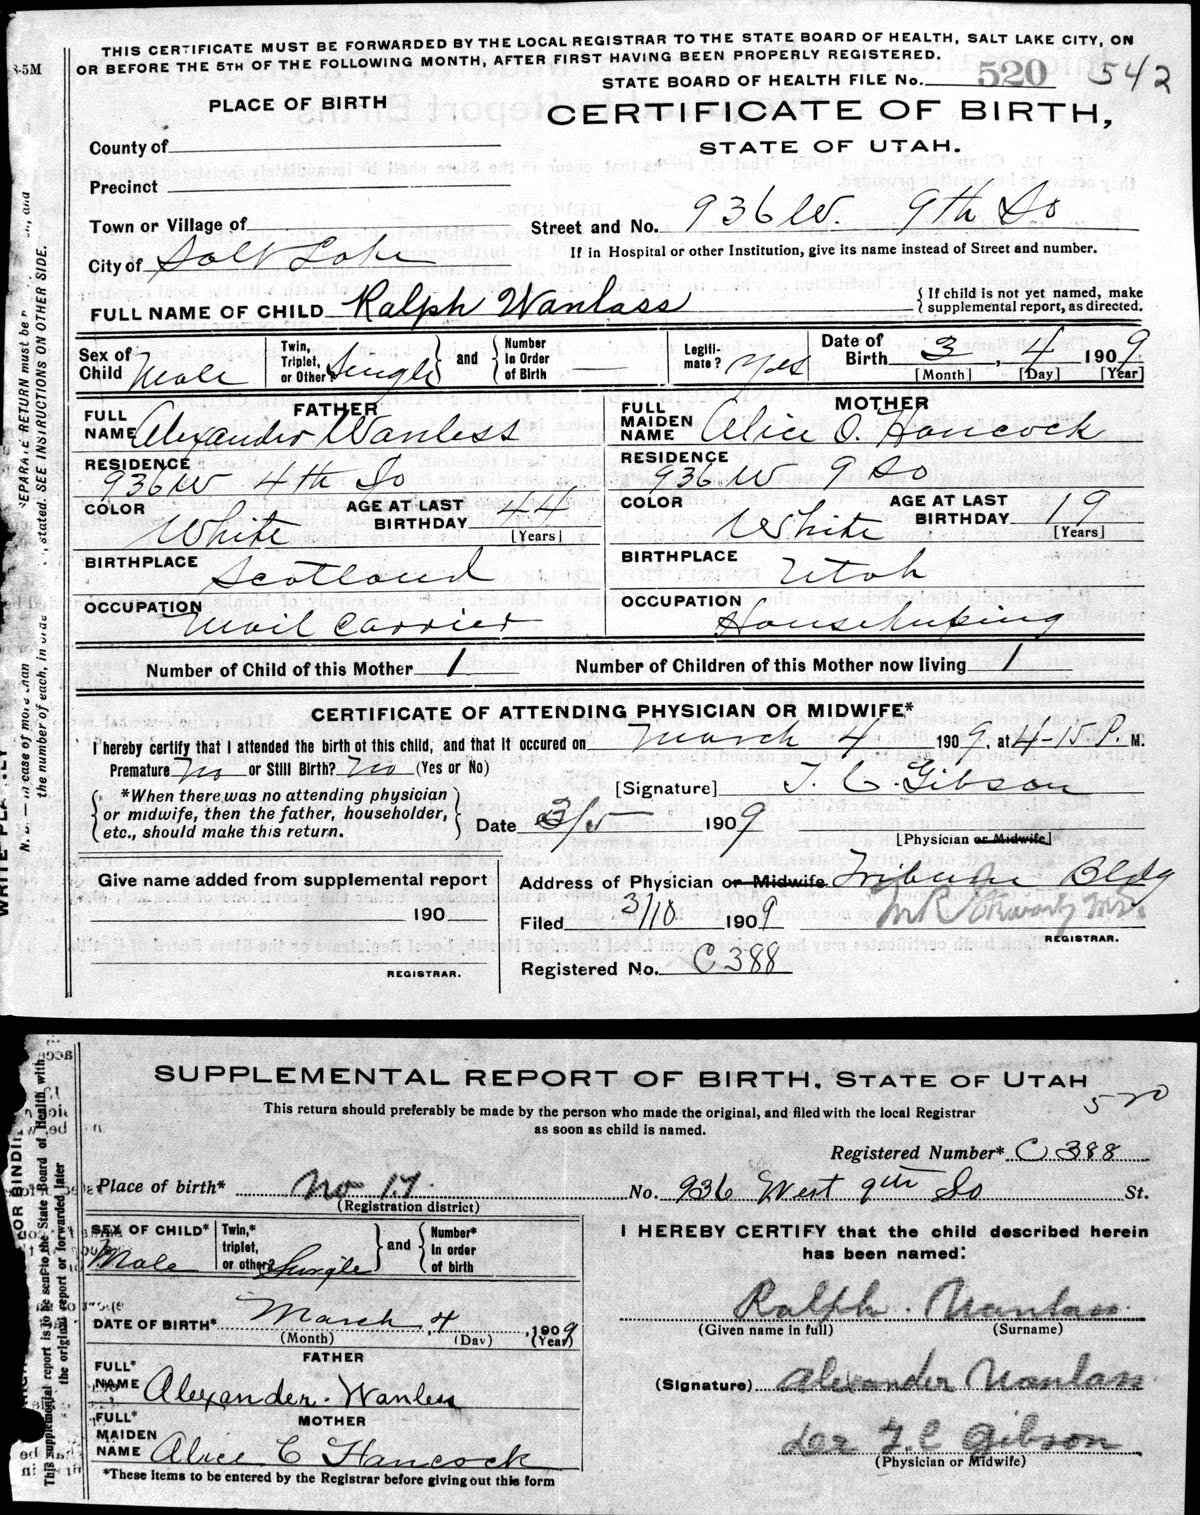 THIS CERTIFICATE MUST BE FORWARDED BY THE LOCAL REGISTRAR TO THE STATE BOARD OF HEALTH, SALT LAKE CITY, ON
OR BEFORE THE 5TH OF THE FOLLOWING MONTH, AFTER FIRST HAVING BEEN PROPERLY REGISTERED.
STATE BOARD OF HEALTH FILE No. 520 542
PLACE OF BIRTH
CERTIFICATE OF BIRTH,
STATE OF UTAH.
County of
Precinct
Town or Village of
Street and No. 936 W. 9th So
City of Salt Lake
If in Hospital or other Institution, give its name instead of Street and number.
FULL NAME OF CHILD Ralph Wanlass
{ If child is not yet named, make supplemental report, as directed.
Sex of Child Male
Twin, Triplet, or Other? Single } and { Number in Order of Birth —
Legitimate? Yes
Date of Birth 3, 4 1909
[Month] [Day] [Year]
FATHER
FULL NAME Alexander Wanless
RESIDENCE 936 W 4th So
COLOR White
AGE AT LAST BIRTHDAY 44 [Years]
BIRTHPLACE Scotland
OCCUPATION Mail Carrier
MOTHER
FULL MAIDEN NAME Alice O. Hancock
RESIDENCE 936 W 9 So
COLOR White
AGE AT LAST BIRTHDAY 19 [Years]
BIRTHPLACE Utah
OCCUPATION Housekeeping
Number of Child of this Mother 1 Number of Children of this Mother now living 1
CERTIFICATE OF ATTENDING PHYSICIAN OR MIDWIFE*
I hereby certify that I attended the birth of this child, and that it occured on March 4 1909, at 4-15 P. M.
Premature? No or Still Birth? No (Yes or No)
[Signature] T. C. Gibson
*When there was no attending physician
or midwife, then the father, householder,
etc., should make this return.
Date 3/5 1909
[Physician or Midwife]
Give name added from supplemental report
190
REGISTRAR.
Address of Physician or Midwife Tribune Bldg
Filed 3/10 1909
REGISTRAR.
Registered No. C 388
SUPPLEMENTAL REPORT OF BIRTH, STATE OF UTAH
520
This return should preferably be made by the person who made the original, and filed with the local Registrar
as soon as child is named.
Registered Number* C 388
Place of birth* No 17. No. 936 West 9th So St.
(Registration district)
SEX OF CHILD* Male
Twin,* triplet, or other? Single } and { Number* in order of birth
I HEREBY CERTIFY that the child described herein
has been named:
Ralph. Wanlass.
(Given name in full) (Surname)
DATE OF BIRTH* March, 4, 1909
(Month) (Day) (Year)
FATHER
FULL* NAME Alexander. Wanless
(Signature) Alexander Wanlass
MOTHER
FULL* MAIDEN NAME Alice C Hancock
T. C Gibson
(Physician or Midwife)
*These items to be entered by the Registrar before giving out this form
This supplemental report is to be sent to the State Board of Health with
the original report or forwarded later
stated. SEE INSTRUCTIONS ON OTHER SIDE.